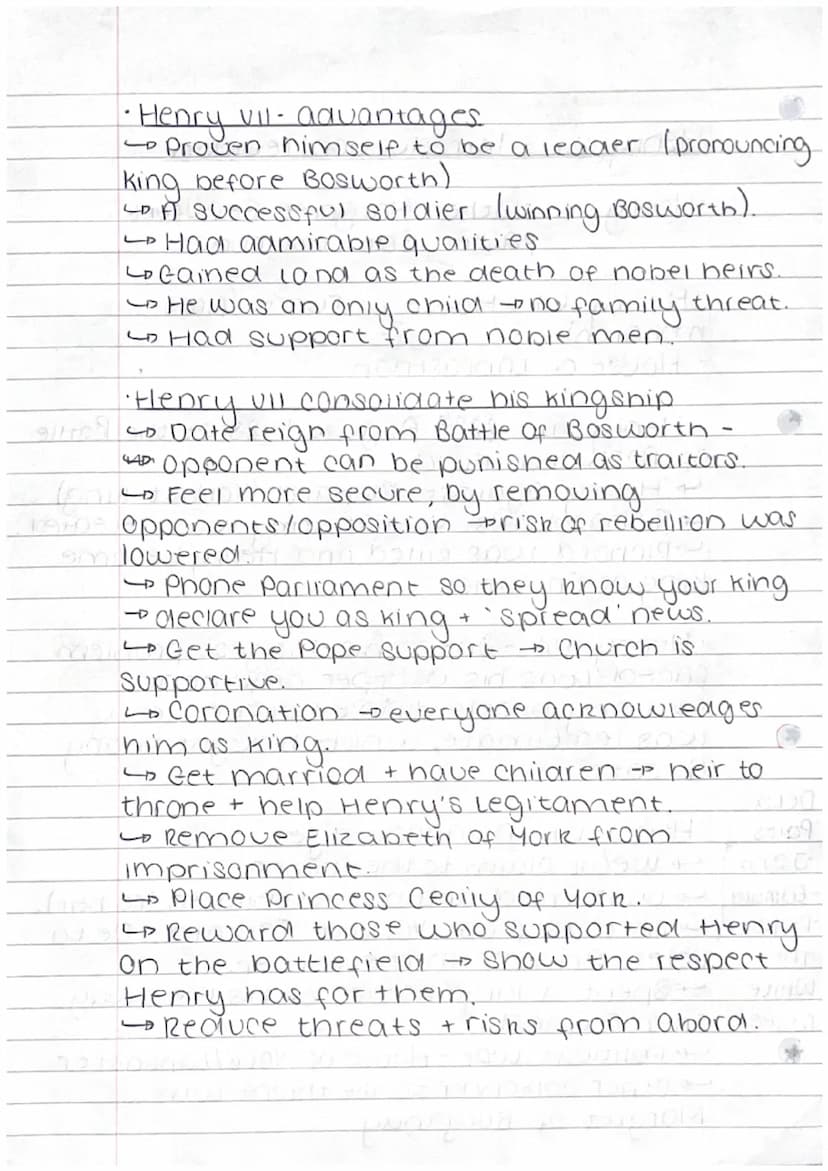 · Henry VII - advantages
↳ Proven himself to be a leader (pronouncing
king before Bosworth)
↳ A successful soldier (winning Bosworth).
↳ Had admirable qualities
↳ Gained land as the death of nobel heirs.
↳ He was an only child → no family threat.
↳ Had support from noble men.
· Henry VII consolidate his kingship
↳ Date reign from Battle of Bosworth -
↳ opponent can be punished as traitors.
↳ Feel more secure, by removing
opponents/opposition → risk of rebellion was
lowered.
↳ Phone Parliament so they know your king
→ declare you as king + 'spread' news.
↳ Get the Pope support → Church is
supportive.
↳ Coronation → everyone acknowledges
him as king.
↳ Get married + have children → heir to
throne + help Henry's Legitament.
↳ Remove Elizabeth of York from
imprisonment.
↳ Place Princess Cecily of York.
↳ Reward those who supported Henry
on the battlefield → show the respect
Henry has for them.
↳ Reduce threats + risks from abord.